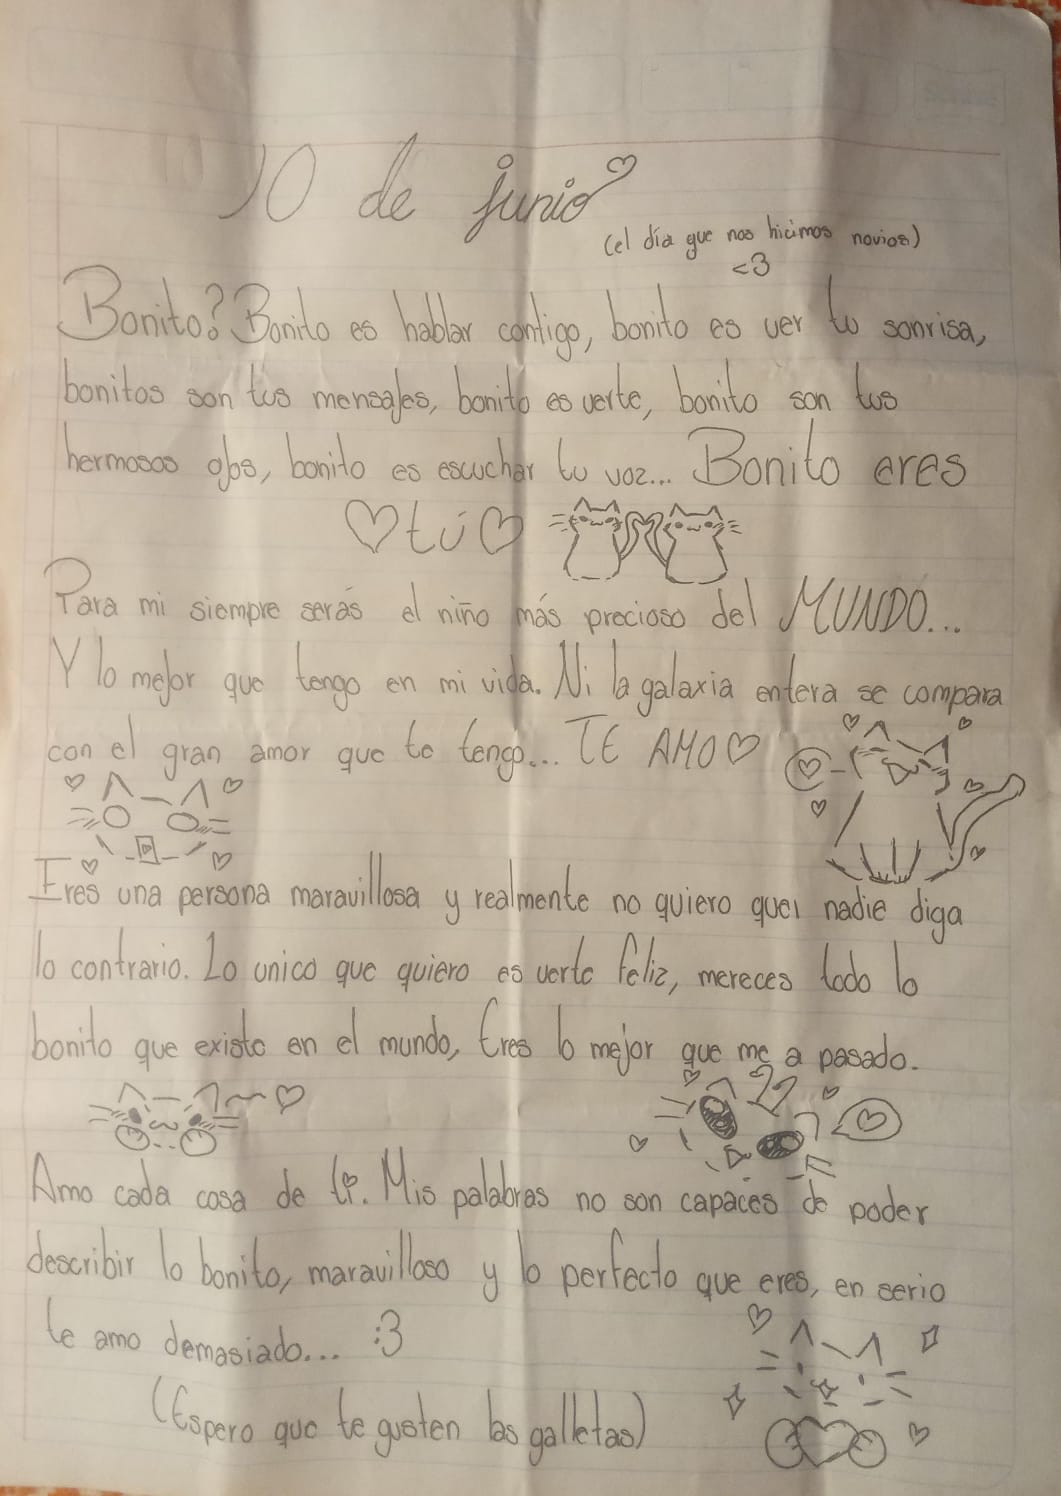 10 de junio
(el día que nos hicimos novios)
<3
Bonito? Bonito es hablar contigo, bonito es ver tu sonrisa,
bonitos son tus mensajes, bonito es verte, bonito son tus
hermosos ojos, bonito es escuchar tu voz... Bonito eres
♡tú♡
Para mi siempre serás el niño más precioso del MUNDO...
Y lo mejor que tengo en mi vida. Ni la galaxia entera se compara
con el gran amor que te tengo... TE AMO♡
Eres una persona maravillosa y realmente no quiero que nadie diga
lo contrario. Lo unico que quiero es verte feliz, mereces todo lo
bonito que existe en el mundo, Eres lo mejor que me a pasado.
Amo cada cosa de ti. Mis palabras no son capaces de poder
describir lo bonito, maravilloso y lo perfecto que eres, en serio
te amo demasiado... :3
(Espero que te gusten las galletas)